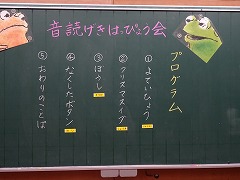 音読げきはっぴょう会
プログラム
①よていひょう
②クリスマスイブ
③ぼうし
④なくしたボタン
⑤おわりのことば